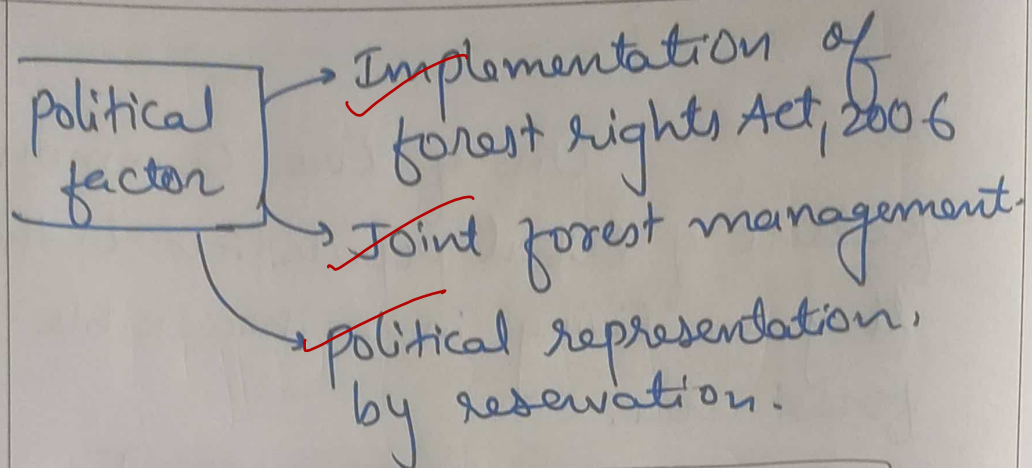 Political
factor
Implementation of
forest rights Act, 2006
Joint forest management.
political representation,
by reservation.